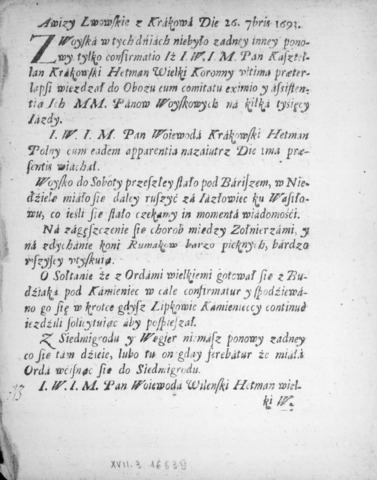 Awizy Lwowskie z Krákowá Die 26. 7bris 1691.
Z Woyská w tych dniách niebyło żadney inney pono-
wy tylko confirmatio Iż I. W. I. M. Pan Kásztel-
lan Krákowski Hetman Wielki Koronny vltima præter-
lapsi wieżdżał do Obozu cum comitatu eximio y ássisten-
tia Ich MM. Pánow Woyskowych ná kilká tysięcy
Iázdy.
I. W. I. M. Pan Woiewodá Krákowski Hetman
Polny cum eadem apparentia názáiutrz Die 1ma præ-
sentis wiáchał.
Woysko do Soboty przeszłey stało pod Báriszem, w Nie-
dzielę miáło się dáley ruszyć zá Iázłowiec ku Wásiło-
wu, co ieśli się stáło czekamy in momentá wiádomości.
Ná zágęszczenie się chorob miedzy Zołnierzámi, y
ná zdychánie koni Rumakow bárzo pięknych, bárdzo
wszyscy vtyskuią.
O Sołtanie że z Ordámi wielkiemi gotował się z Bu-
dźiaká pod Kámieniec w cále confirmatur y spodźiewá-
no go się w krotce gdysz Lipkowie Kámienieccy continuo
ieźdźili solicytuiąc áby pośpieszał.
Z Siedmigrodu y Węgier nimasz ponowy żadney
co się tám dźieie, lubo tu on gdáy ferebátur że miáłá
Ordá wćisnąć się do Siedmigrodu.
I. W. I. M. Pan Woiewodá Wileński Hetman wiel-
ki W.
XVII.3.16639